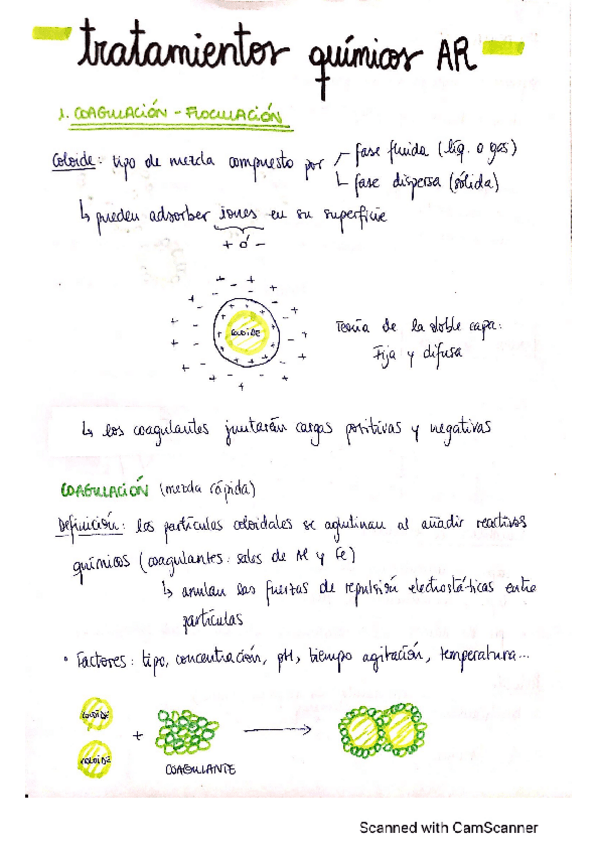 tratamientos químicos AR
1. COAGULACIÓN - FLOCULACIÓN
Coloide: tipo de mezcla compuesto por fase fluida (líq. o gas)
fase dispersa (sólida)
↳ pueden adsorber iones en su superficie
+ ó -
COLOIDE
Teoría de la doble capa:
Fija y difusa
↳ los coagulantes juntarán cargas positivas y negativas
COAGULACIÓN (mezcla rápida)
Definición: las partículas coloidales se aglutinan al añadir reactivos
químicos (coagulantes: sales de Al y Fe)
↳ anulan las fuerzas de repulsión electrostáticas entre
partículas
• Factores: tipo, concentración, pH, tiempo agitación, temperatura...
COLOIDE
+
COLOIDE
COAGULANTE
Scanned with CamScanner